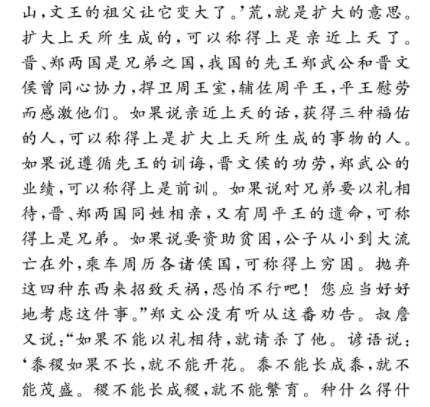 山,文王的祖父让它变大了。’荒,就是扩大的意思。
扩大上天所生成的,可以称得上是亲近上天了。
晋、郑两国是兄弟之国,我国的先王郑武公和晋文
侯曾同心协力,捍卫周王室,辅佐周平王,平王慰劳
而感激他们。如果说亲近上天的话,获得三种福佑
的人,可以称得上是扩大上天所生成的事物的人。
如果说遵循先王的训诲,晋文侯的功劳,郑武公的
业绩,可以称得上是前训。如果说对兄弟要以礼相
待,晋、郑两国同姓相亲,又有周平王的遗命,可称
得上是兄弟。如果说要资助贫困,公子从小到大流
亡在外,乘车周历各诸侯国,可称得上穷困。抛弃
这四种东西来招致天祸,恐怕不行吧!您应当好好
地考虑这件事。”郑文公没有听从这番劝告。叔詹
又说:“如果不能以礼相待,就请杀了他。谚语说:
‘黍稷如果不长,就不能开花。黍不能长成黍,就不
能茂盛。稷不能长成稷,就不能繁育。种什么得什